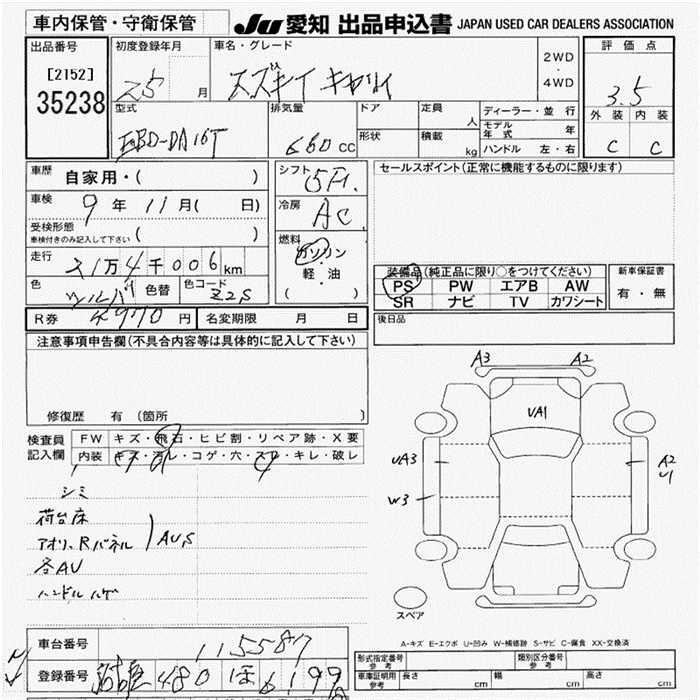 車内保管・守衛保管
JU 愛知 出品申込書 JAPAN USED CAR DEALERS ASSOCIATION
出品番号
[2152]
35238
初度登録年月
25 月
車名・グレード
スズキ キャリイ
2WD
・
4WD
評価点
3.5
外装 内装
C C
型式
EBD-DA16T
排気量
660 CC
ドア
形状
定員 人
積載 kg
ディーラー・並 行
モデル年式 年
ハンドル 左・右
車歴
自家用・( )
車検
9 年 11 月( 日)
受検形態
車検付きのみ記入して下さい ( )
走行
21万4千006 km
色
シルバ 色替
色コード
Z2S
シフト
5F
冷房
AC
燃料
ガソリン
・
軽・油
( )
セールスポイント(正常に機能するものに限ります)
装備品(純正品に限り○をつけてください)
PS PW エアB AW
SR ナビ TV カワシート
新車保証書
有・無
R券 円
名変期限 月 日
後日品
注意事項申告欄(不具合内容等は具体的に記入して下さい)
修復歴 有 (箇所 )
検査員
記入欄
FW キズ・飛石・ヒビ割・リペア跡・X要
内装 キズ・汚レ・コゲ・穴・スレ・キレ・破レ
シミ
荷台床
アオリ、Rパネル AU,S
各AU
ハンドルハゲ
A3 A2
UA1
UA3
W3
A2
U1
スペア
A-キズ E-エクボ U-凹み W-補修跡 S-サビ C-腐食 XX-交換済
車台番号
115587
登録番号
480 6199
形式指定番号
参考
類別区分番号
参考
車庫証明用
参考
長さ cm
幅 cm
高さ cm